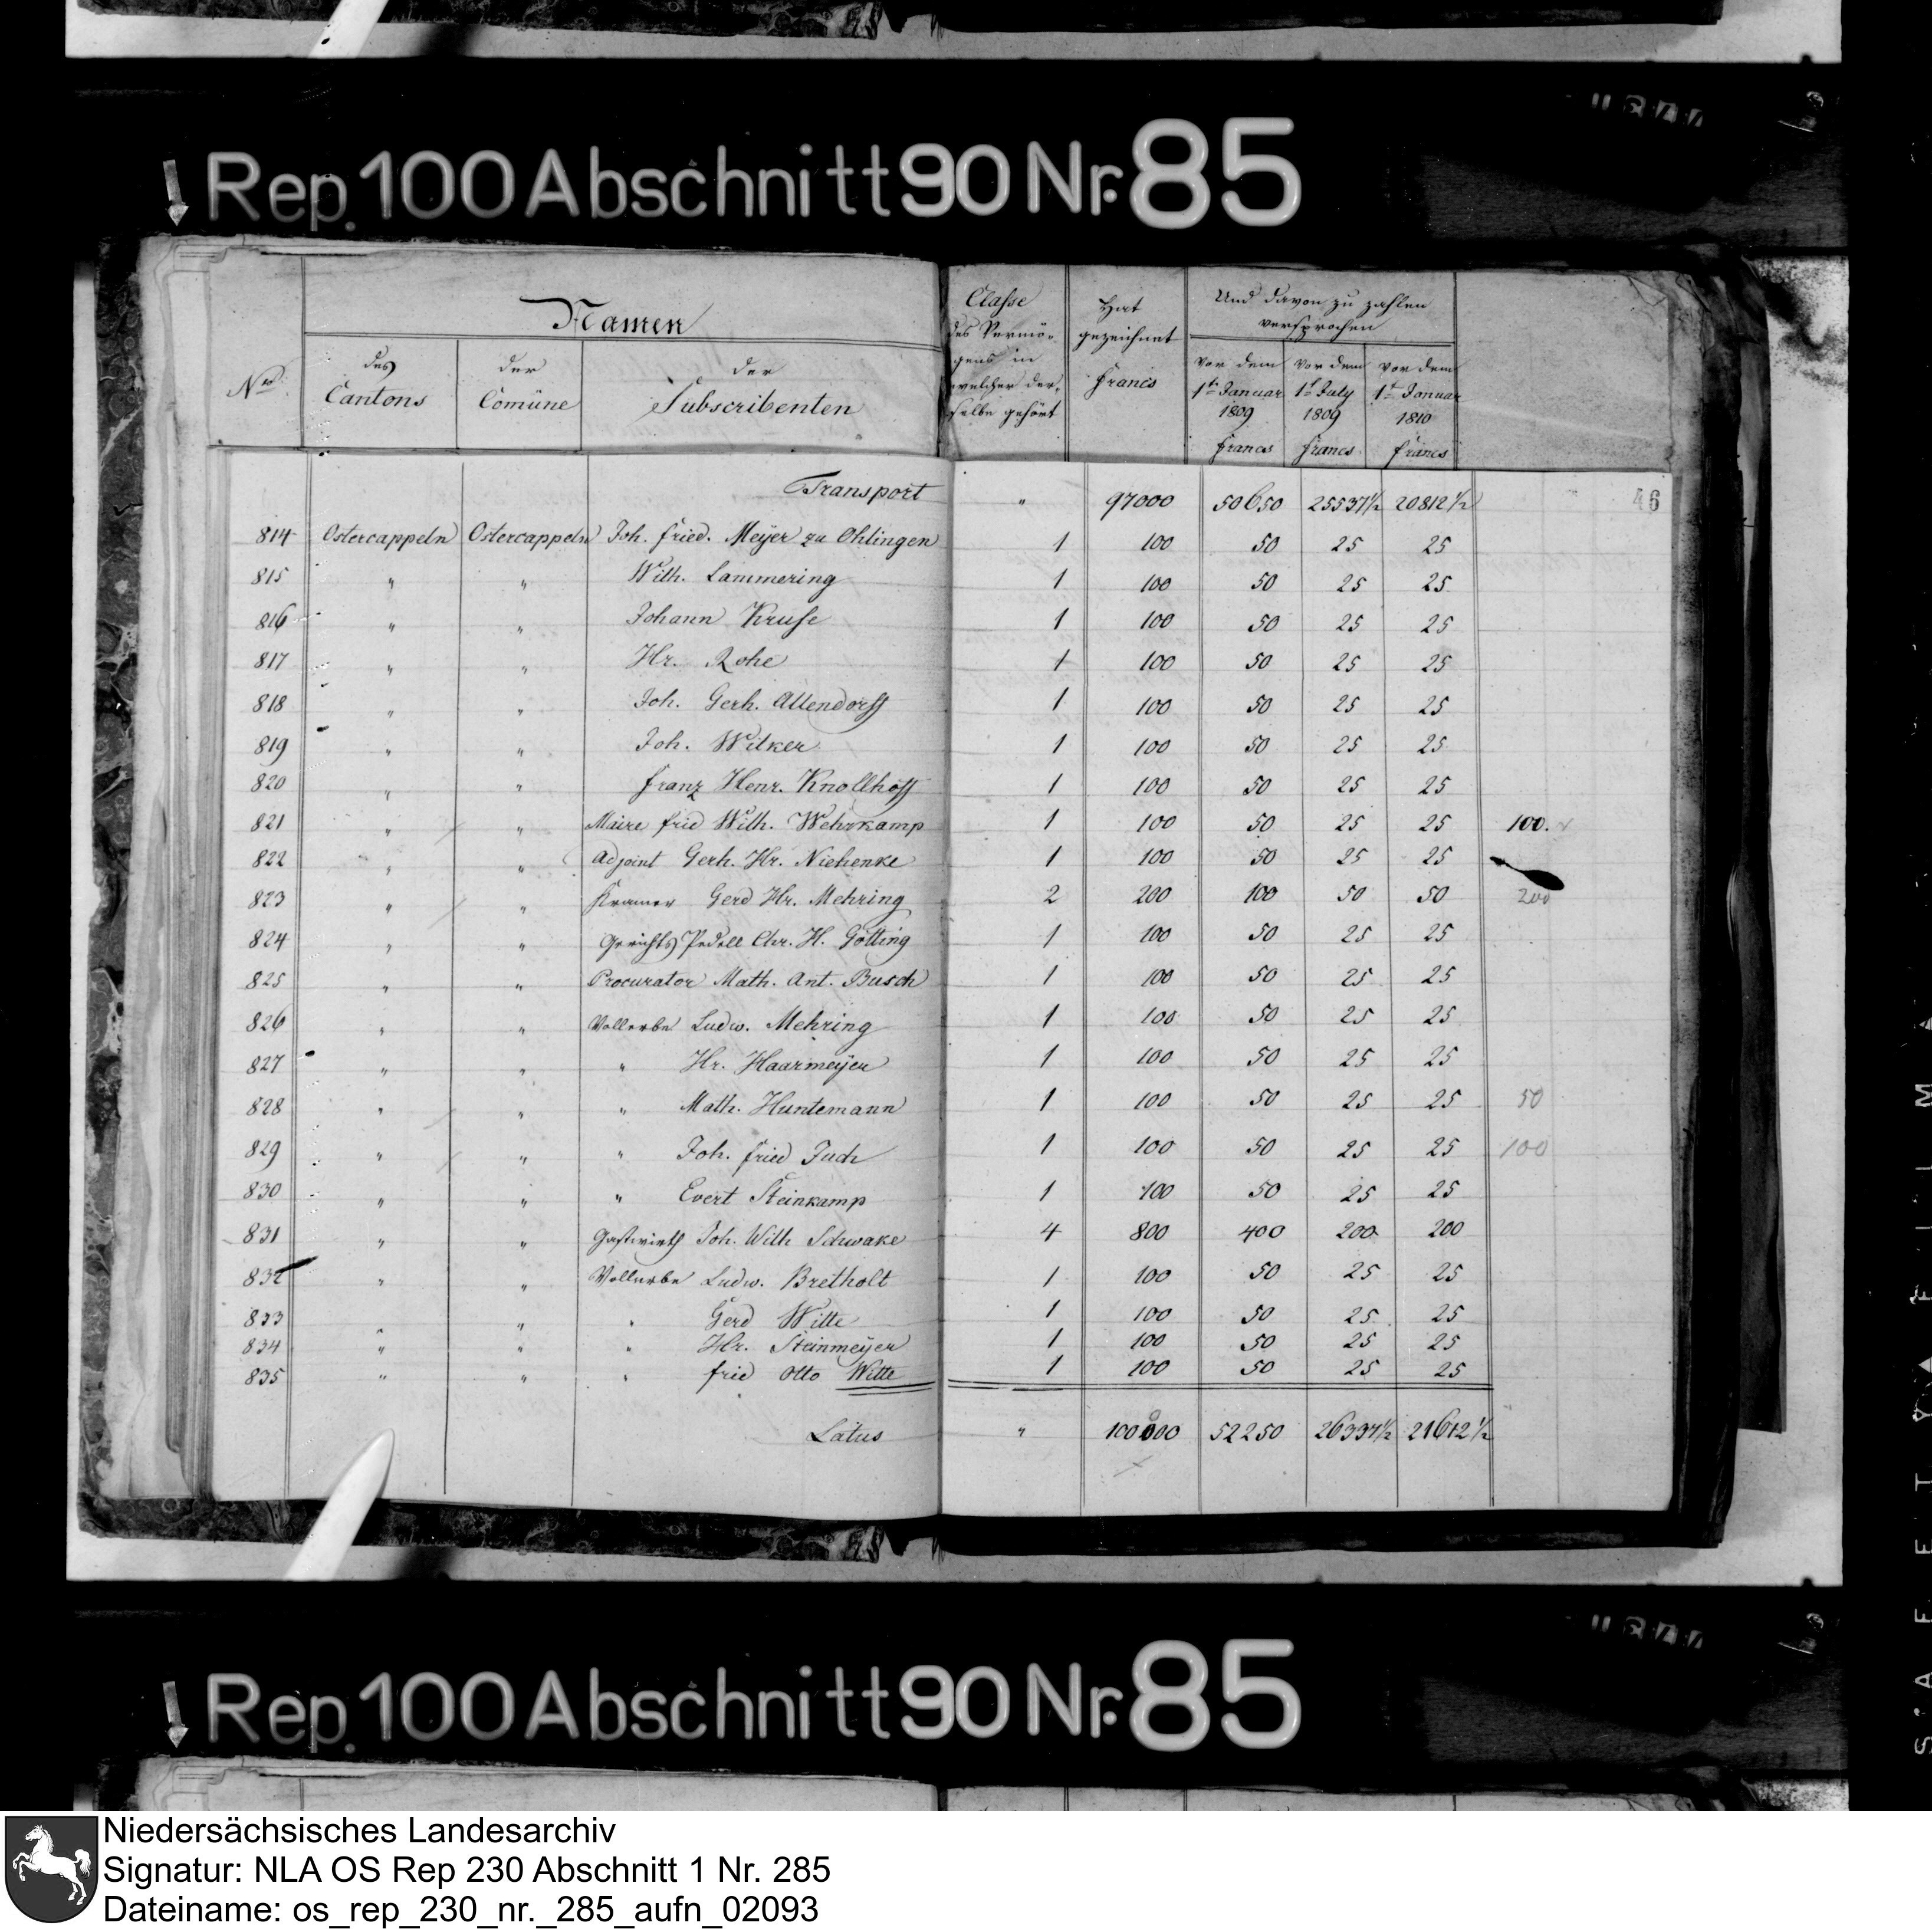 Rep. 100 Abschnitt 90 Nr. 85
Namen
No. des Cantons der Comüne der Subscribenten
Classe des Vermögens in welcher derselbe gehört
Hat gezeichnet Francs
Und davon zu zahlen versprochen
vor dem 1ten Januar 1809 Francs
vor dem 1t July 1809 Francs
vor dem 1t Januar 1810 Francs
46
Transport " 97000 50650 25537½ 20812½
814 Ostercappeln Ostercappeln Joh. Fried. Meyer zu Ohlingen 1 100 50 25 25
815 " " Wilh. Lammering 1 100 50 25 25
816 " " Johann Kruse 1 100 50 25 25
817 " " Hr. Rohe 1 100 50 25 25
818 " " Joh. Gerh. Allendorff 1 100 50 25 25
819 " " Joh. Wilker 1 100 50 25 25
820 " " Franz Henr. Knollhoff 1 100 50 25 25
821 " " Maire Fried Wilh. Wehrkamp 1 100 50 25 25 100.
822 " " Adjoint Gerh. Hr. Niehenke 1 100 50 25 25
823 " " Kramer Gerd Hr. Mehring 2 200 100 50 50 200
824 " " Gerichts Pedell Chr. H. Götting 1 100 50 25 25
825 " " Procurator Math. Ant. Busch 1 100 50 25 25
826 " " Vollerbe Ludw. Mehring 1 100 50 25 25
827 " " " Hr. Haarmeyer 1 100 50 25 25
828 " " " Math. Huntemann 1 100 50 25 25 50
829 " " " Joh. Fried Juch 1 100 50 25 25 100
830 " " " Evert Steinkamp 1 100 50 25 25
831 " " Gastwirth Joh. Wilh Schwake 4 800 400 200 200
832 " " Vollerbe Ludw. Bretholt 1 100 50 25 25
833 " " " Gerd Witte 1 100 50 25 25
834 " " " Hr. Steinmeyer 1 100 50 25 25
835 " " " Fried Otto Witte 1 100 50 25 25
Latus " 100000 52250 26337½ 21612½
Rep. 100 Abschnitt 90 Nr. 85
Niedersächsisches Landesarchiv
Signatur: NLA OS Rep 230 Abschnitt 1 Nr. 285
Dateiname: os_rep_230_nr._285_aufn_02093